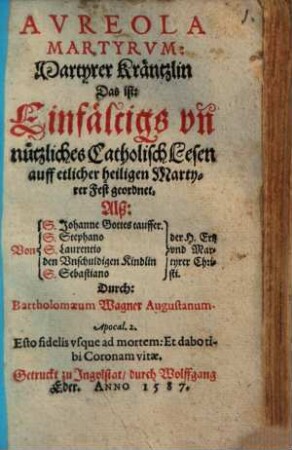 AVREOLA
MARTYRVM:
Martyrer Kräntzlin
Das ist:
Einfältigs vñ
nützliches Catholisch Lesen
auff etlicher heiligen Marty-
rer Fest geordnet.
Alß:
Von
S. Johanne Gottes tauffer.
S. Stephano
S. Laurentio
den Vnschuldigen Kindlin
S. Sebastiano
der H. Ertz
vnd Mar-
tyrer Chri-
sti.
Durch:
Bartholomæum Wagner Augustanum.
Apocal. 2.
Esto fidelis vsque ad mortem: Et dabo ti-
bi Coronam vitæ.
Getruckt zu Ingolstat/ durch Wolffgang
Eder. ANNO 1587.